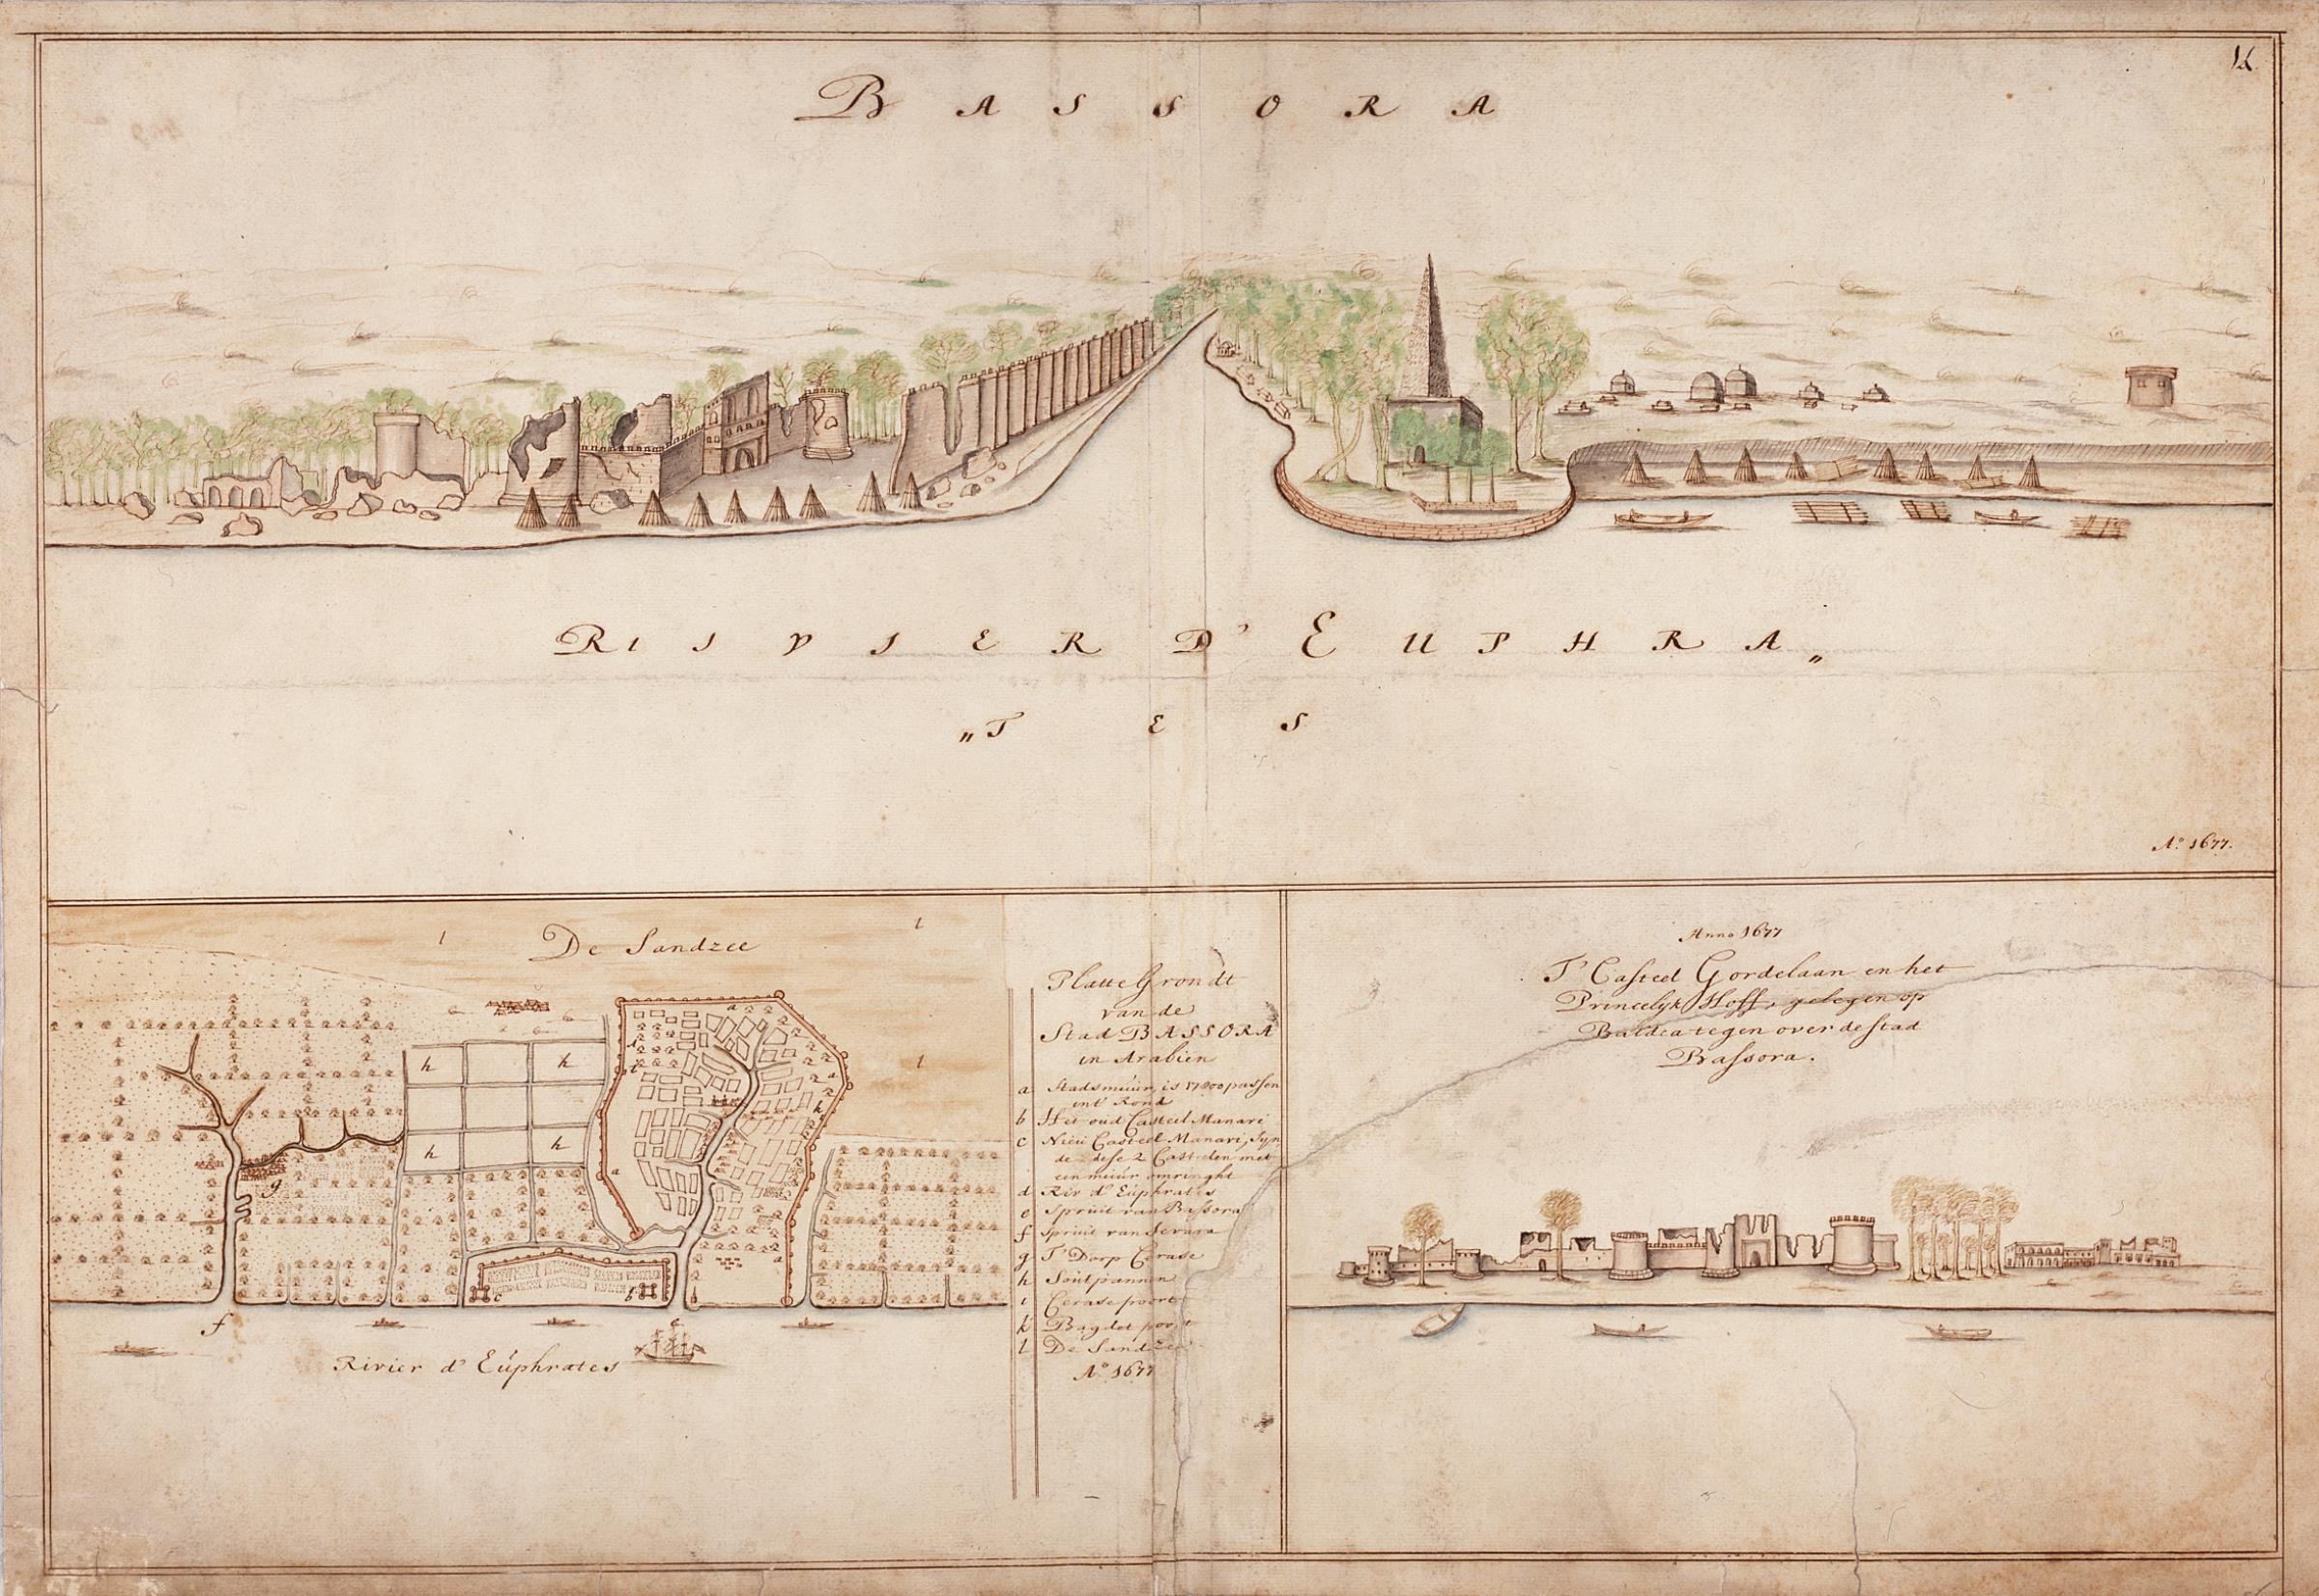 BASSORA
RIVIER D' EUPHRA„
„TES
A° 1677.
De Sandzee
l
l
l
h
h
h
h
a
a
a
k
i
g
c
b
f
e
Rivier d' Eúphrates
Platte Grondt
van de
Stad BASSORA
in Arabien
a Stadsmúúr, is 17200 passen
int' Rond
b Het oud Casteel Manari
c Nieú Casteel Manari, Syn
de dese 2 Castelen met
een múúr omringht
d Riv d' Eúphrates
e Sprúit van Bassora
f Sprúit van Serara
g T' Dorp Cerase
h Soútpannen
i Cerase poort
k Bagdet poort
l De Sandzee
A° 1677
Anno 1677
T' Casteel Gordelaan en het
Princelyk Hoff, gelegen op
tegen over de stad
Bassora.